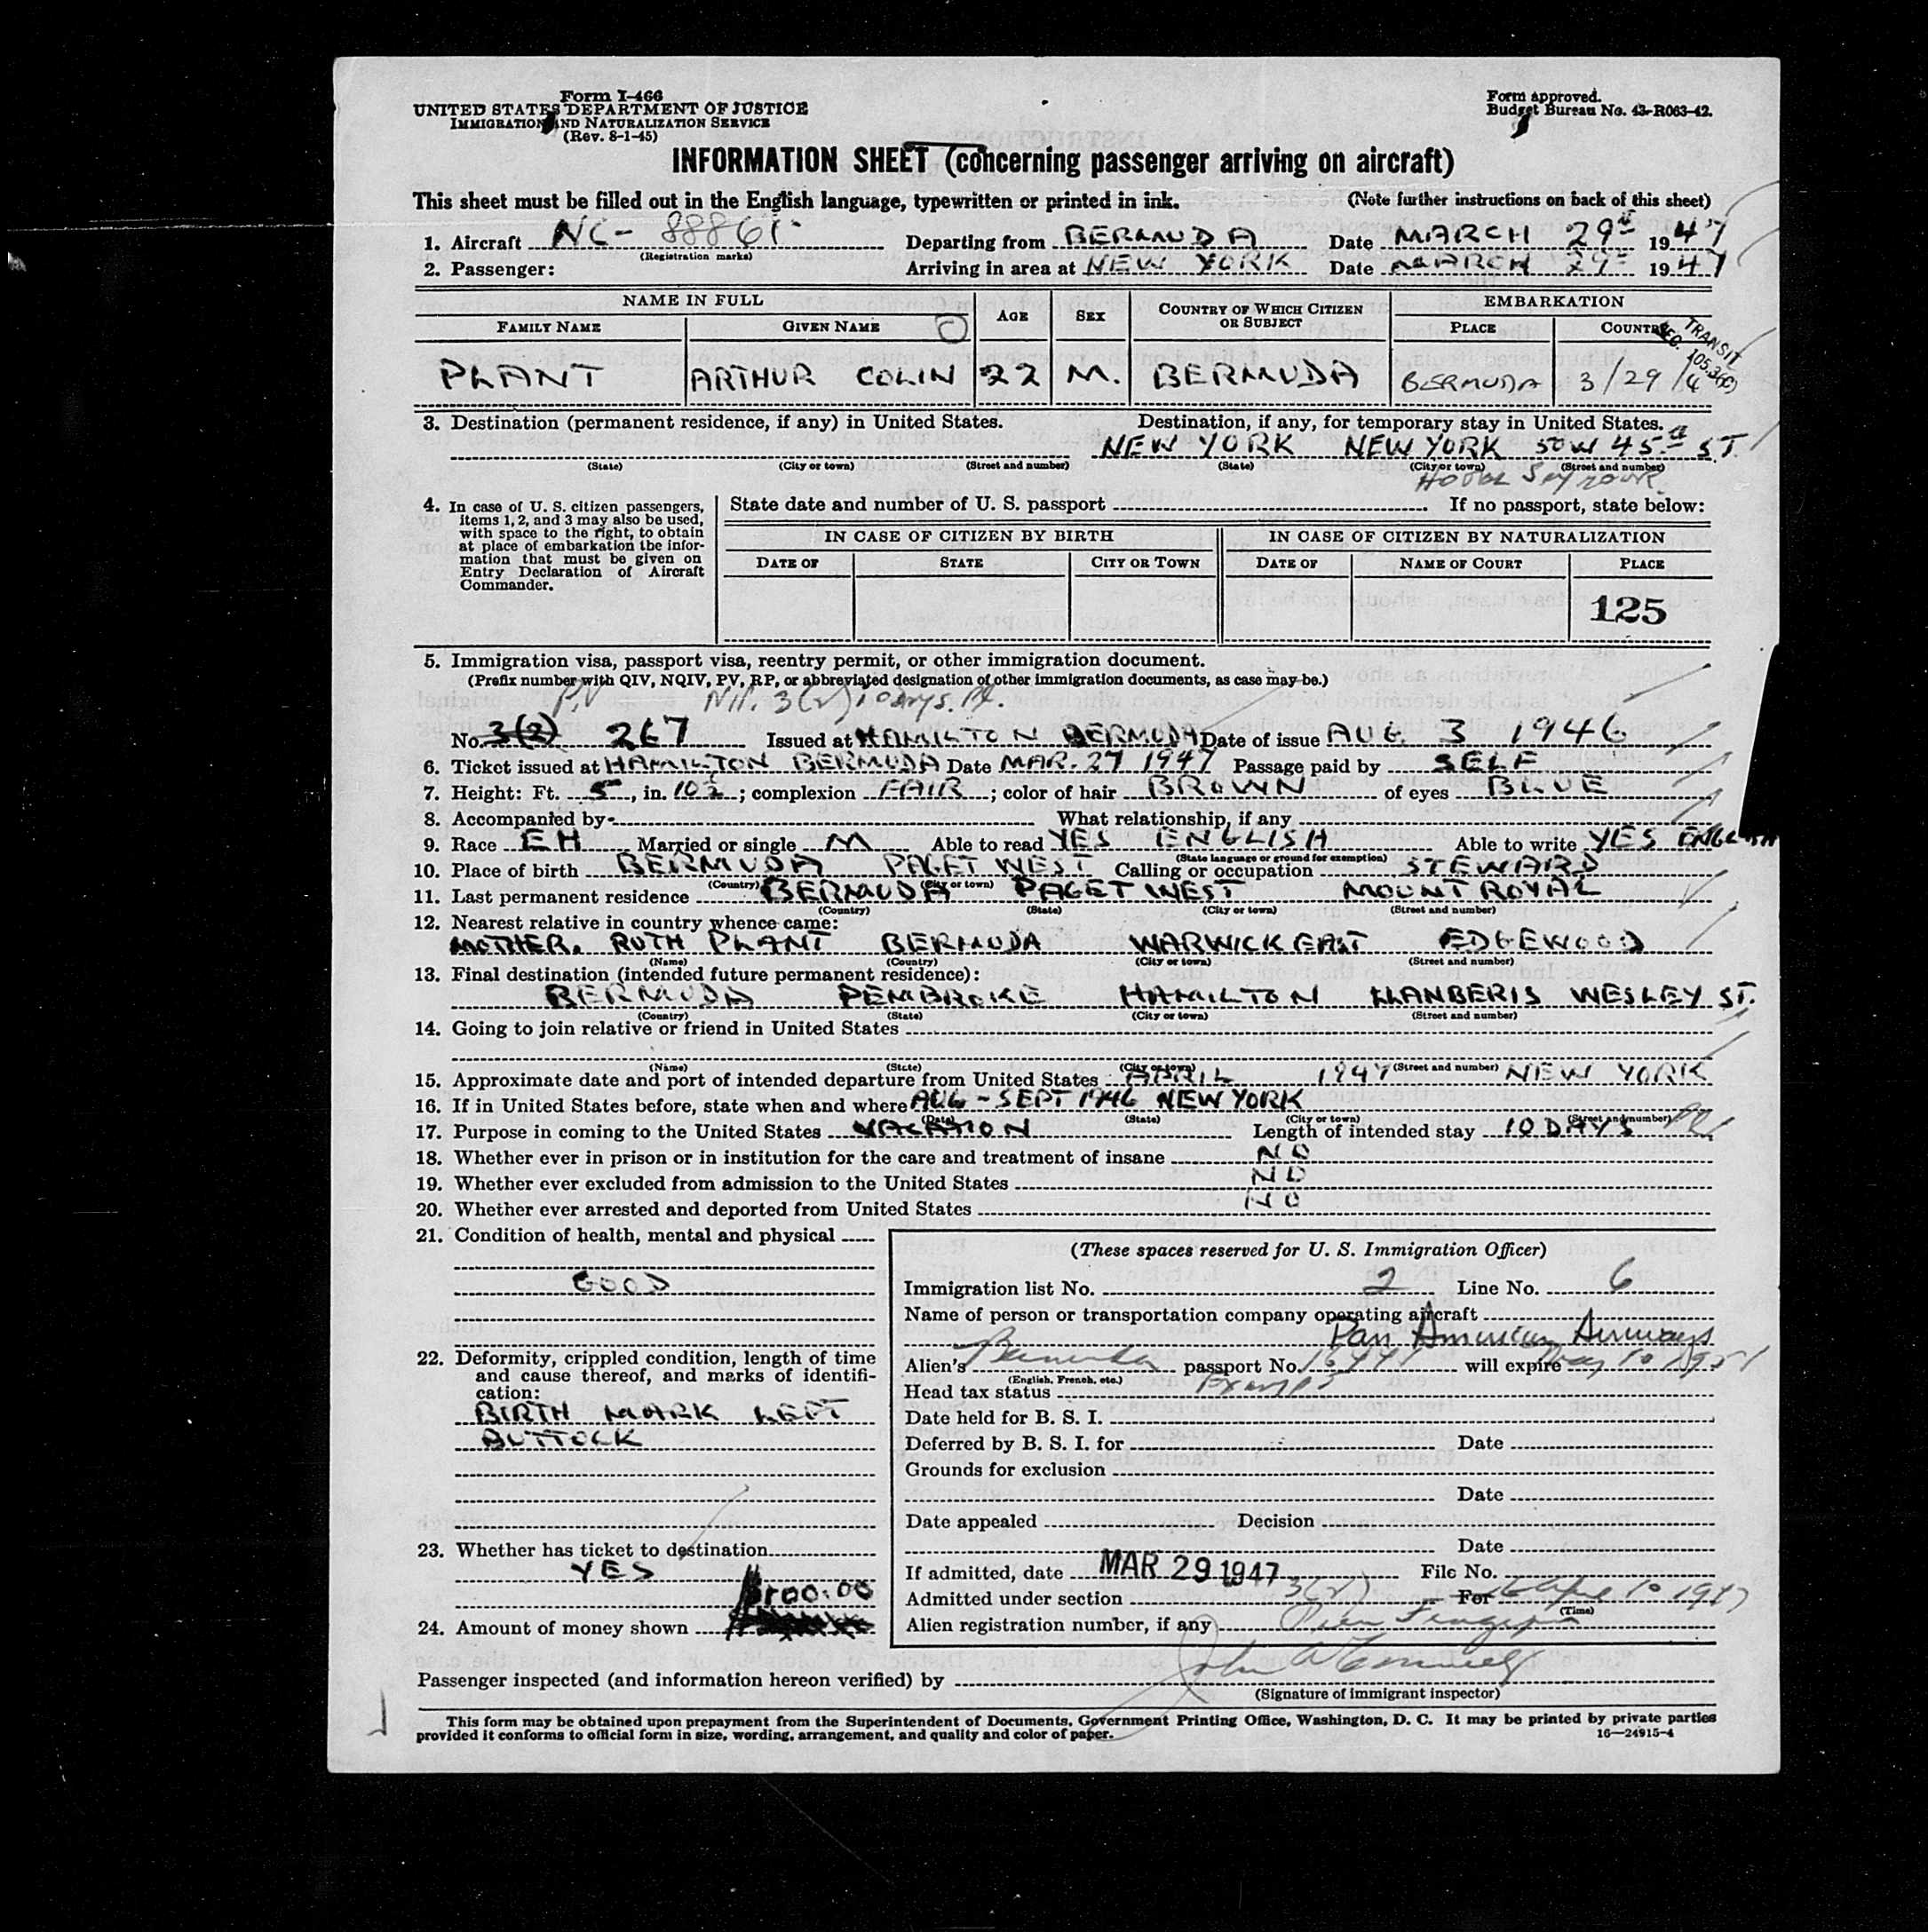 Form I-466
UNITED STATES DEPARTMENT OF JUSTICE
IMMIGRATION AND NATURALIZATION SERVICE
(Rev. 8-1-45)
Form approved.
Budget Bureau No. 43-R063-42.
INFORMATION SHEET (concerning passenger arriving on aircraft)
This sheet must be filled out in the English language, typewritten or printed in ink. (Note further instructions on back of this sheet)
1. Aircraft NC- 88861 Departing from BERMUDA Date MARCH 29th 1947
(Registration marks)
2. Passenger: Arriving in area at NEW YORK Date MARCH 29th 1947
NAME IN FULL AGE SEX COUNTRY OF WHICH CITIZEN OR SUBJECT EMBARKATION
FAMILY NAME GIVEN NAME PLACE COUNTRY
TRANSIT
PLANT ARTHUR COLIN 22 M. BERMUDA BERMUDA 3/29/4
3. Destination (permanent residence, if any) in United States. Destination, if any, for temporary stay in United States.
NEW YORK NEW YORK 50 W 45th ST.
(State) (City or town) (Street and number) (State) (City or town) (Street and number)
HOTEL SEYMOUR
4. In case of U. S. citizen passengers, items 1, 2, and 3 may also be used, with space to the right, to obtain at place of embarkation the information that must be given on Entry Declaration of Aircraft Commander.
State date and number of U. S. passport If no passport, state below:
IN CASE OF CITIZEN BY BIRTH IN CASE OF CITIZEN BY NATURALIZATION
DATE OF STATE CITY OR TOWN DATE OF NAME OF COURT PLACE
125
5. Immigration visa, passport visa, reentry permit, or other immigration document.
(Prefix number with QIV, NQIV, PV, RP, or abbreviated designation of other immigration documents, as case may be.)
PV 3(2) 10 days.
No. 3(2) 267 Issued at HAMILTON BERMUDA Date of issue AUG 3 1946
6. Ticket issued at HAMILTON BERMUDA Date MAR. 27 1947 Passage paid by SELF
7. Height: Ft. 5, in. 10½; complexion FAIR; color of hair BROWN of eyes BLUE
8. Accompanied by What relationship, if any
9. Race EH Married or single M Able to read YES ENGLISH Able to write YES ENGLISH
(State language or ground for exemption)
10. Place of birth BERMUDA PAGET WEST Calling or occupation STEWARD
(Country) (City or town)
11. Last permanent residence BERMUDA PAGET WEST MOUNT ROYAL
(Country) (State) (City or town) (Street and number)
12. Nearest relative in country whence came:
MOTHER. RUTH PLANT BERMUDA WARWICK EAST EDGEWOOD
(Name) (Country) (City or town) (Street and number)
13. Final destination (intended future permanent residence):
BERMUDA PEMBROKE HAMILTON LLANBERIS WESLEY ST.
(Country) (State) (City or town) (Street and number)
14. Going to join relative or friend in United States
(Name) (State) (City or town) (Street and number)
15. Approximate date and port of intended departure from United States APRIL 1947 NEW YORK
16. If in United States before, state when and where AUG - SEPT 1946 NEW YORK
(Date) (State) (City or town) (Street and number)
17. Purpose in coming to the United States VACATION Length of intended stay 10 DAYS
18. Whether ever in prison or in institution for the care and treatment of insane NO
19. Whether ever excluded from admission to the United States NO
20. Whether ever arrested and deported from United States NO
21. Condition of health, mental and physical
GOOD
22. Deformity, crippled condition, length of time and cause thereof, and marks of identification:
BIRTH MARK LEFT
BUTTOCK
23. Whether has ticket to destination
YES
$100.00
24. Amount of money shown
(These spaces reserved for U. S. Immigration Officer)
Immigration list No. 2 Line No. 6
Name of person or transportation company operating aircraft
Pan American Airways
Alien's Bermuda passport No. will expire May 10 1951
(English, French, etc.)
Head tax status Exempt
Date held for B. S. I.
Deferred by B. S. I. for Date
Grounds for exclusion
Date
Date appealed Decision
Date
If admitted, date MAR 29 1947 File No.
Admitted under section 3(2) For to April 10 1947
(Time)
Alien registration number, if any
Passenger inspected (and information hereon verified) by
(Signature of immigrant inspector)
This form may be obtained upon prepayment from the Superintendent of Documents, Government Printing Office, Washington, D. C. It may be printed by private parties
provided it conforms to official form in size, wording, arrangement, and quality and color of paper. 16—24915-4